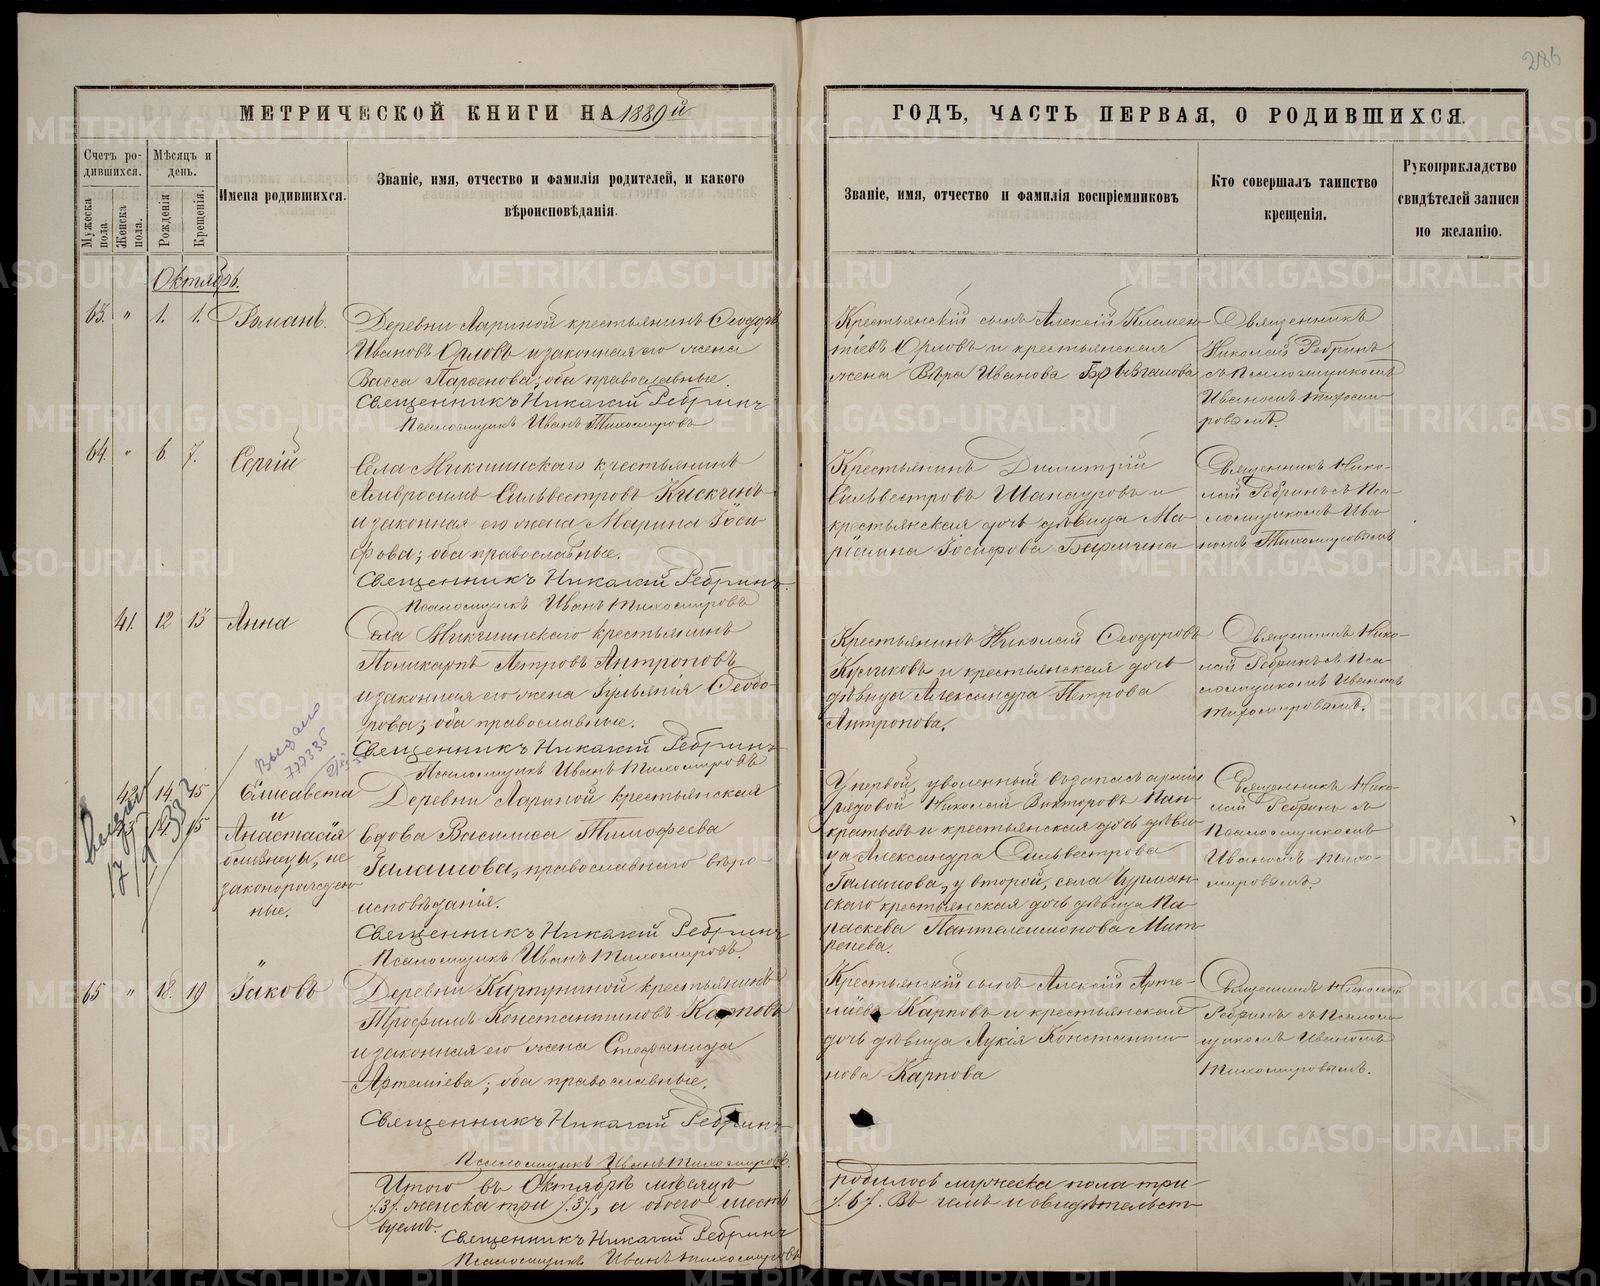 286
МЕТРИЧЕСКОЙ КНИГИ НА 1889й
ГОДЪ, ЧАСТЬ ПЕРВАЯ, О РОДИВШИХСЯ.
Счетъ ро-
дившихся.
Мужеска
пола.
Женска
пола.
Мѣсяцъ и
день.
Рожденія
Крещенія.
Имена родившихся.
Званіе, имя, отчество и фамилія родителей, и какого
вѣроисповѣданія.
Званіе, имя, отчество и фамилія воспріемниковъ
Кто совершалъ таинство
крещенія.
Рукоприкладство
свидѣтелей записи
по желанію.
Октябрь.
63. " 1. 1. Романъ.
Деревни Лариной крестьянинъ Ѳеодоръ
Ивановъ Орловъ и законная его жена
Васса Парѳенова; оба православные.
Священникъ Николай Ребринъ
Псаломщикъ Иванъ Тихомировъ
Крестьянскій сынъ Алексій Климен-
тіевъ Орловъ и крестьянская
жена Вѣра Иванова
Священникъ
Николай Ребринъ
съ псаломщикомъ
Иваномъ Тихоми-
ровымъ.
64. " 6. 7. Сергій
Села Микшинскаго крестьянинъ
Амвросимъ Сильвестровъ
и законная его жена Марина Іоси-
фова; оба православные.
Священникъ Николай Ребринъ
Псаломщикъ Иванъ Тихомировъ
Крестьянинъ Димитрій
Сильвестровъ и
крестьянская дочь дѣвица Ма-
Іосифова
Священникъ Нико-
лай Ребринъ съ пса-
ломщикомъ Ива-
номъ Тихомировымъ
41. 12 13 Анна
Села Микшинскаго крестьянинъ
Поликарпъ Петровъ Антроповъ
и законная его жена Іуліанія Ѳеодо-
рова; оба православные.
Священникъ Николай Ребринъ
Псаломщикъ Иванъ Тихомировъ
Крестьянинъ Николай Ѳеодоровъ
Куликовъ и крестьянская дочь
дѣвица Александра Петрова
Антропова.
Священникъ Нико-
лай Ребринъ съ пса-
ломщикомъ Иваномъ
Тихомировымъ.
777335
42 14 15 Елисавета
14. 15 Анастасія
близнецы, не
законорожден
ные.
Деревни Лариной крестьянская
вдова Василиса Тимофеева
Галашова, православнаго вѣро-
исповѣданія.
Священникъ Николай Ребринъ
Псаломщикъ Иванъ Тихомировъ.
У первой, уволенный въ запасъ арміи
рядовой Николай Викторовъ Пан-
кратьевъ и крестьянская дочь дѣви-
ца Александра Сильвестрова
Галашова, у второй, села Мурман-
скаго крестьянская дочь дѣвица Па-
раскева Пантелеимонова Мит-
ренева.
Священникъ Нико-
лай Ребринъ съ
Псаломщикомъ
Иваномъ Тихо-
мировымъ.
65 " 18. 19 Іаковъ
Деревни Карпуниной крестьянинъ
Трофимъ Константиновъ Карповъ
и законная его жена Стефанида
Артеміева; оба православные.
Священникъ Николай Ребринъ
Псаломщикъ Иванъ Тихомировъ.
Крестьянскій сынъ Алексій Арте-
міевъ Карповъ и крестьянская
дочь дѣвица Лукія Константи-
нова Карпова
Священникъ Николай
Ребринъ съ Псалом-
щикомъ Иваномъ
Тихомировымъ.
Итого въ Октябрѣ мѣсяцѣ родилось мужеска пола три
/.3/. женска три /.3/., а обоего шесть /.6/. Въ чемъ и свидѣтельст-
вуемъ.
Священникъ Николай Ребринъ
Псаломщикъ Иванъ Тихомировъ
METRIKI.GASO-URAL.RU